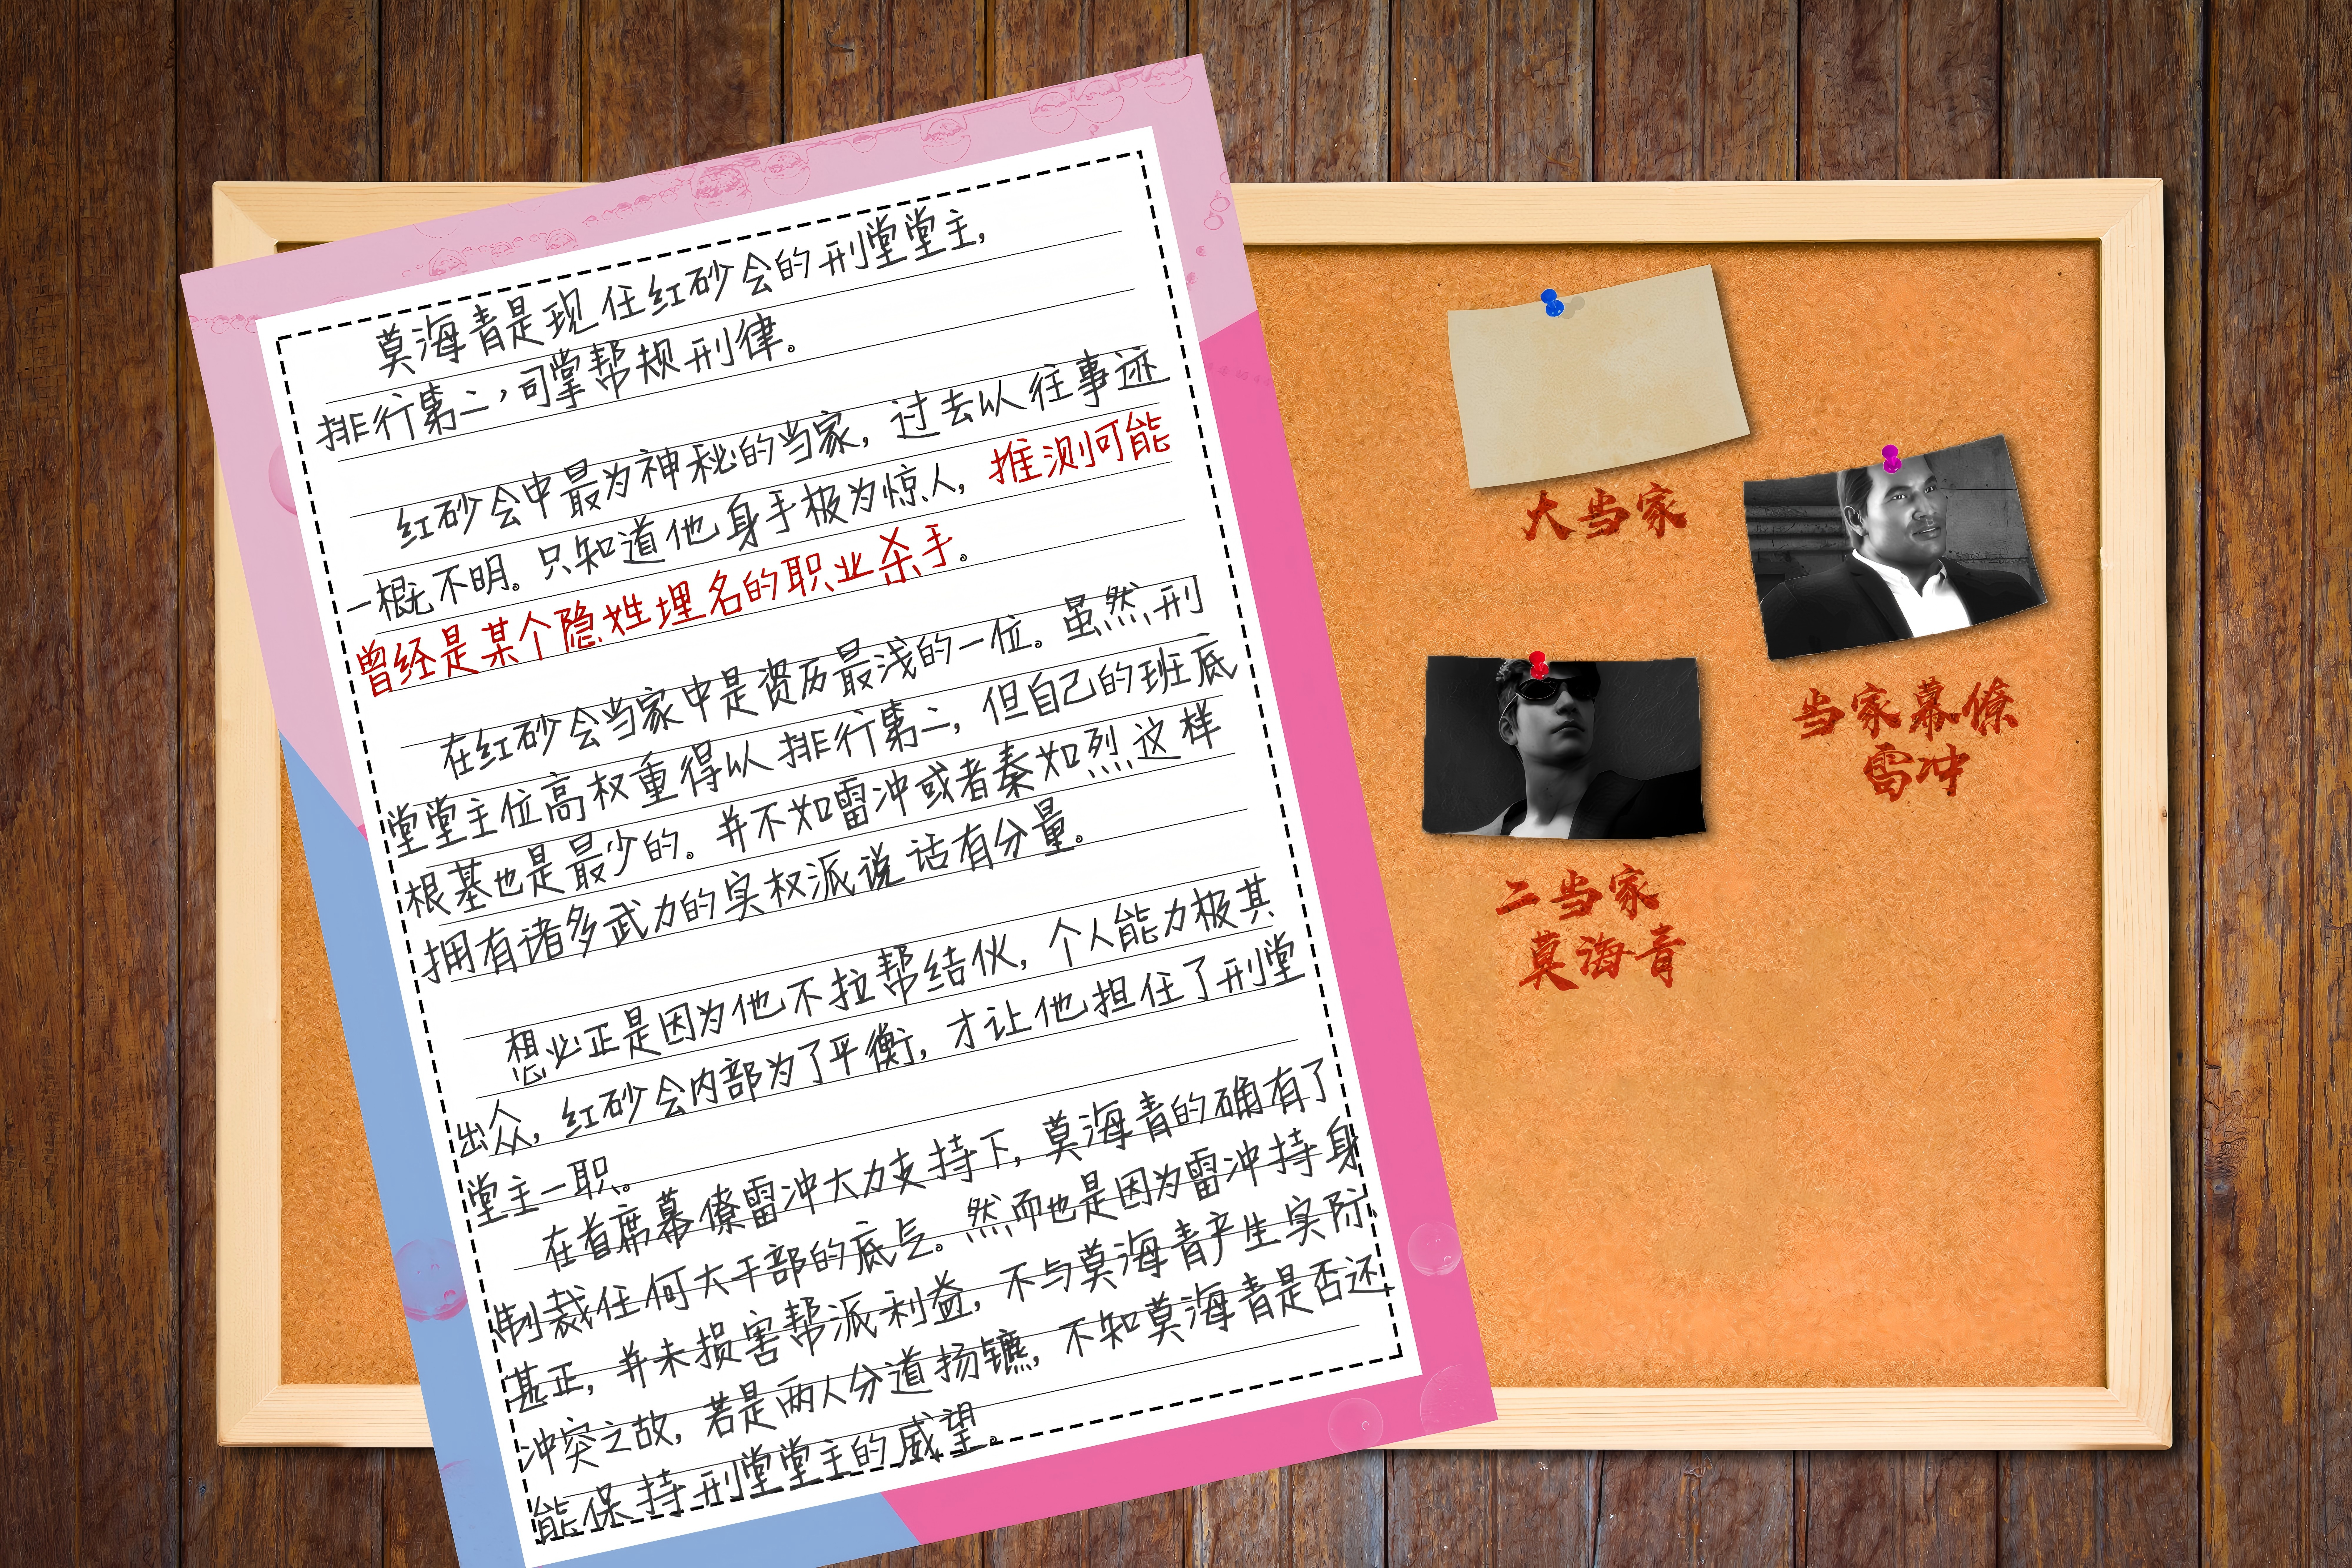 莫海青是现任红砂会的刑堂堂主,
排行第二，司掌帮规刑律。
红砂会中最为神秘的当家, 过去以往事迹
一概不明。只知道他身手极为惊人, 推测可能
曾经是某个隐姓埋名的职业杀手。
在红砂会当家中是资历最浅的一位。虽然刑
堂堂主位高权重得以排行第二, 但自己的班底
根基也是最少的。并不如雷冲或者秦如烈这样
拥有诸多武力的实权派说话有分量。
想必正是因为他不拉帮结伙, 个人能力极其
出众, 红砂会内部为了平衡, 才让他担任了刑堂
堂主一职。
在首席幕僚雷冲大力支持下, 莫海青的确有了
制裁任何大干部的底气。然而也是因为雷冲持身
甚正, 并未损害帮派利益, 不与莫海青产生实际
冲突之故, 若是两人分道扬镳, 不知莫海青是否还
能保持刑堂堂主的威望。
大当家
当家幕僚
雷冲
二当家
莫海青